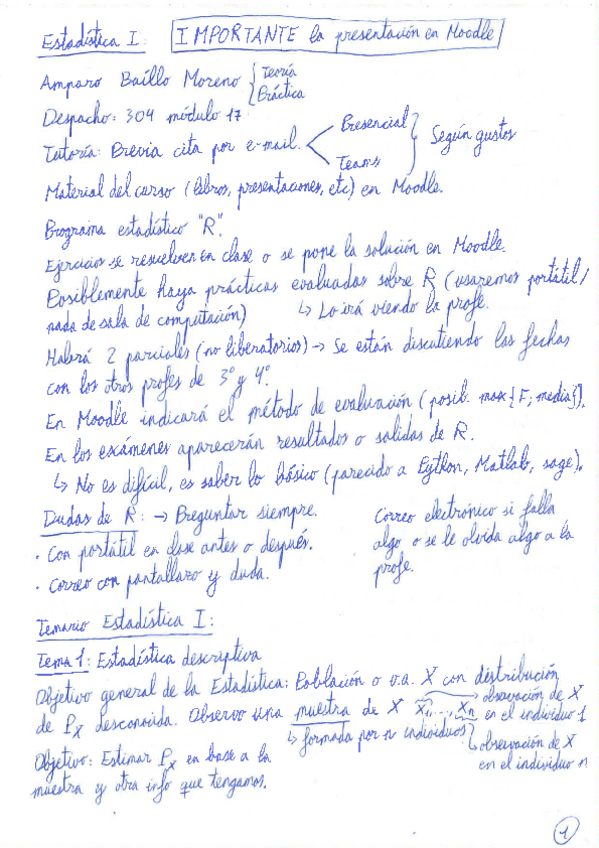 Estadística I: IMPORTANTE la presentación en Moodle
Amparo Baíllo Moreno { Teoría
Práctica
Despacho: 304 módulo 17
Tutoría: Previa cita por e-mail. < Presencial
Teams } Según gustos
Material del curso (libros, presentaciones, etc) en Moodle.
Programa estadístico "R".
Ejercicios se resuelven en clase o se pone la solución en Moodle.
Posiblemente haya prácticas evaluadas sobre R (usaremos portátil /
nada de sala de computación) ↳ Lo irá viendo la profe.
Habrá 2 parciales (no liberatorios) → Se están discutiendo las fechas
con los otros profes de 3º y 4º.
En Moodle indicará el método de evaluación (posib. max{F; media}).
En los exámenes aparecerán resultados o salidas de R.
↳ No es difícil, es saber lo básico (parecido a Python, Matlab, sage).
Dudas de R: → Preguntar siempre.
· Con portátil en clase antes o después.
· Correo con pantallazo y duda.
Correo electrónico si falla
algo o se le olvida algo a la
profe.
Temario Estadística I:
Tema 1: Estadística descriptiva
Objetivo general de la Estadística: Población o v.a. X con distribución
de P_X desconocida. Observo una muestra de X X₁, ..., Xₙ → observación de X
en el individuo 1
↳ formada por n individuos ↳ observación de X
en el individuo n
Objetivo: Estimar P_X en base a la
muestra y otra info que tengamos.
1